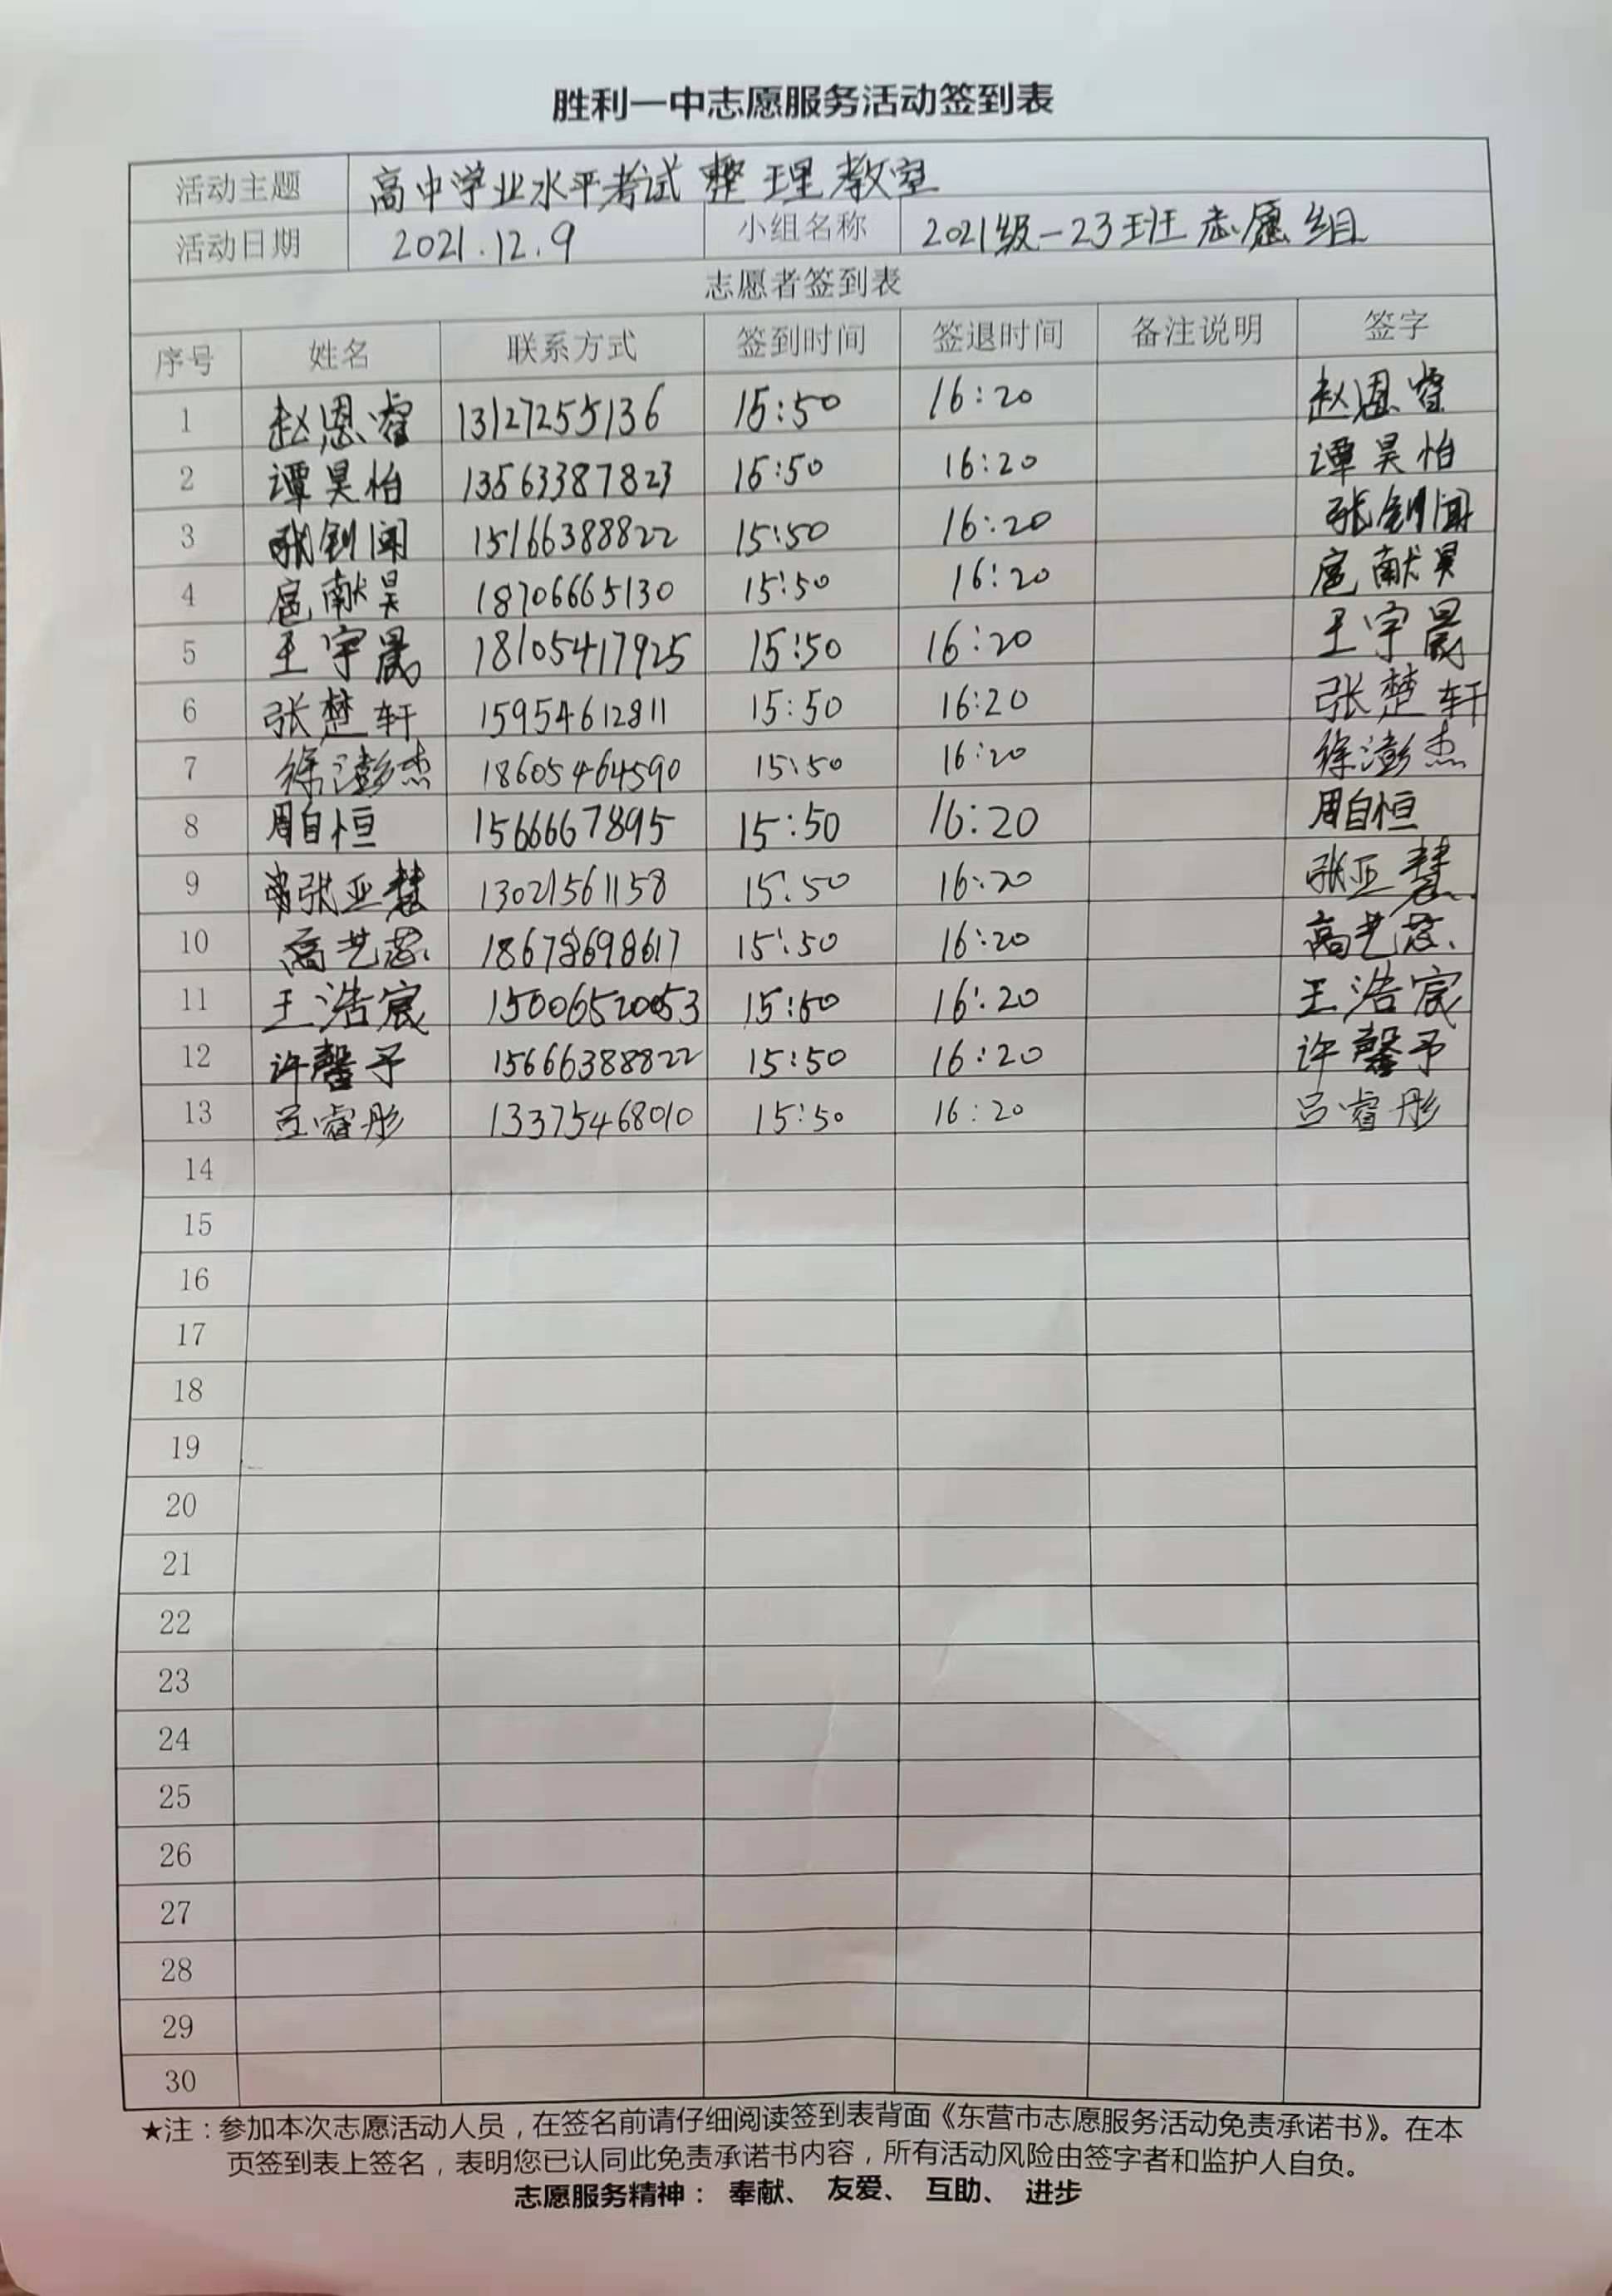 胜利一中志愿服务活动签到表
活动主题 高中学业水平考试 整理教室
活动日期 2021.12.9 小组名称 2021级-23班志愿组
志愿者签到表
序号 姓名 联系方式 签到时间 签退时间 备注说明 签字
1 赵恩睿 13127255136 15:50 16:20 赵恩睿
2 谭昊怡 13563387823 15:50 16:20 谭昊怡
3 张钊闻 15166388822 15:50 16:20 张钊闻
4 扈献昊 18706665130 15:50 16:20 扈献昊
5 王宇晟 18105417925 15:50 16:20 王宇晟
6 张楚轩 15954612811 15:50 16:20 张楚轩
7 徐澎杰 18605464590 15:50 16:20 徐澎杰
8 周自恒 15666667895 15:50 16:20 周自恒
9 张亚慧 13021561158 15:50 16:20 张亚慧
10 高艺蕊 18678698617 15:50 16:20 高艺蕊
11 王浩宸 15006520053 15:50 16:20 王浩宸
12 许馨予 15666388822 15:50 16:20 许馨予
13 吕睿彤 13375468010 15:50 16:20 吕睿彤
14
15
16
17
18
19
20
21
22
23
24
25
26
27
28
29
30
★注：参加本次志愿活动人员，在签名前请仔细阅读签到表背面《东营市志愿服务活动免责承诺书》。在本
页签到表上签名，表明您已认同此免责承诺书内容，所有活动风险由签字者和监护人自负。
志愿服务精神： 奉献、 友爱、 互助、 进步